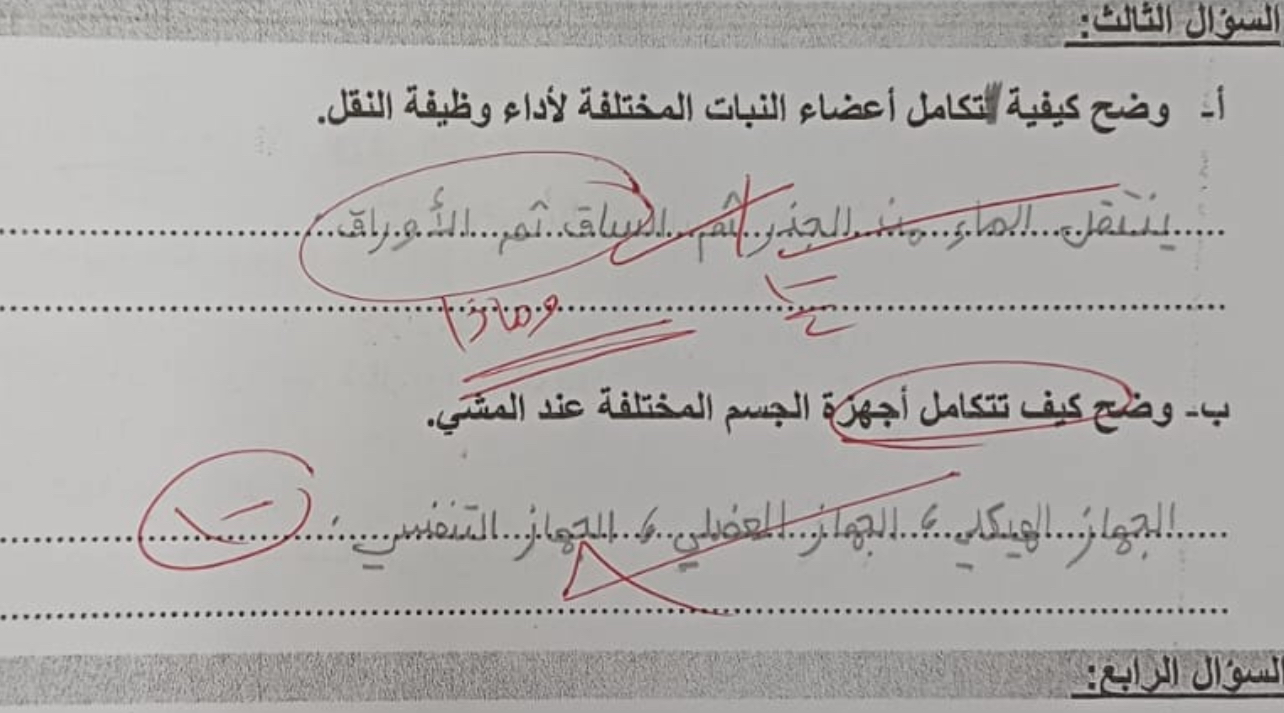 السؤال الثالث:
أ- وضح كيفية تكامل أعضاء النبات المختلفة لأداء وظيفة النقل.
ينتقل الماء من الجذر ثم الساق ثم الأوراق.
وماذا
ب- وضح كيف تتكامل أجهزة الجسم المختلفة عند المشي.
الجهاز الهيكلي، الجهاز العضلي، الجهاز التنفسي.
السؤال الرابع: